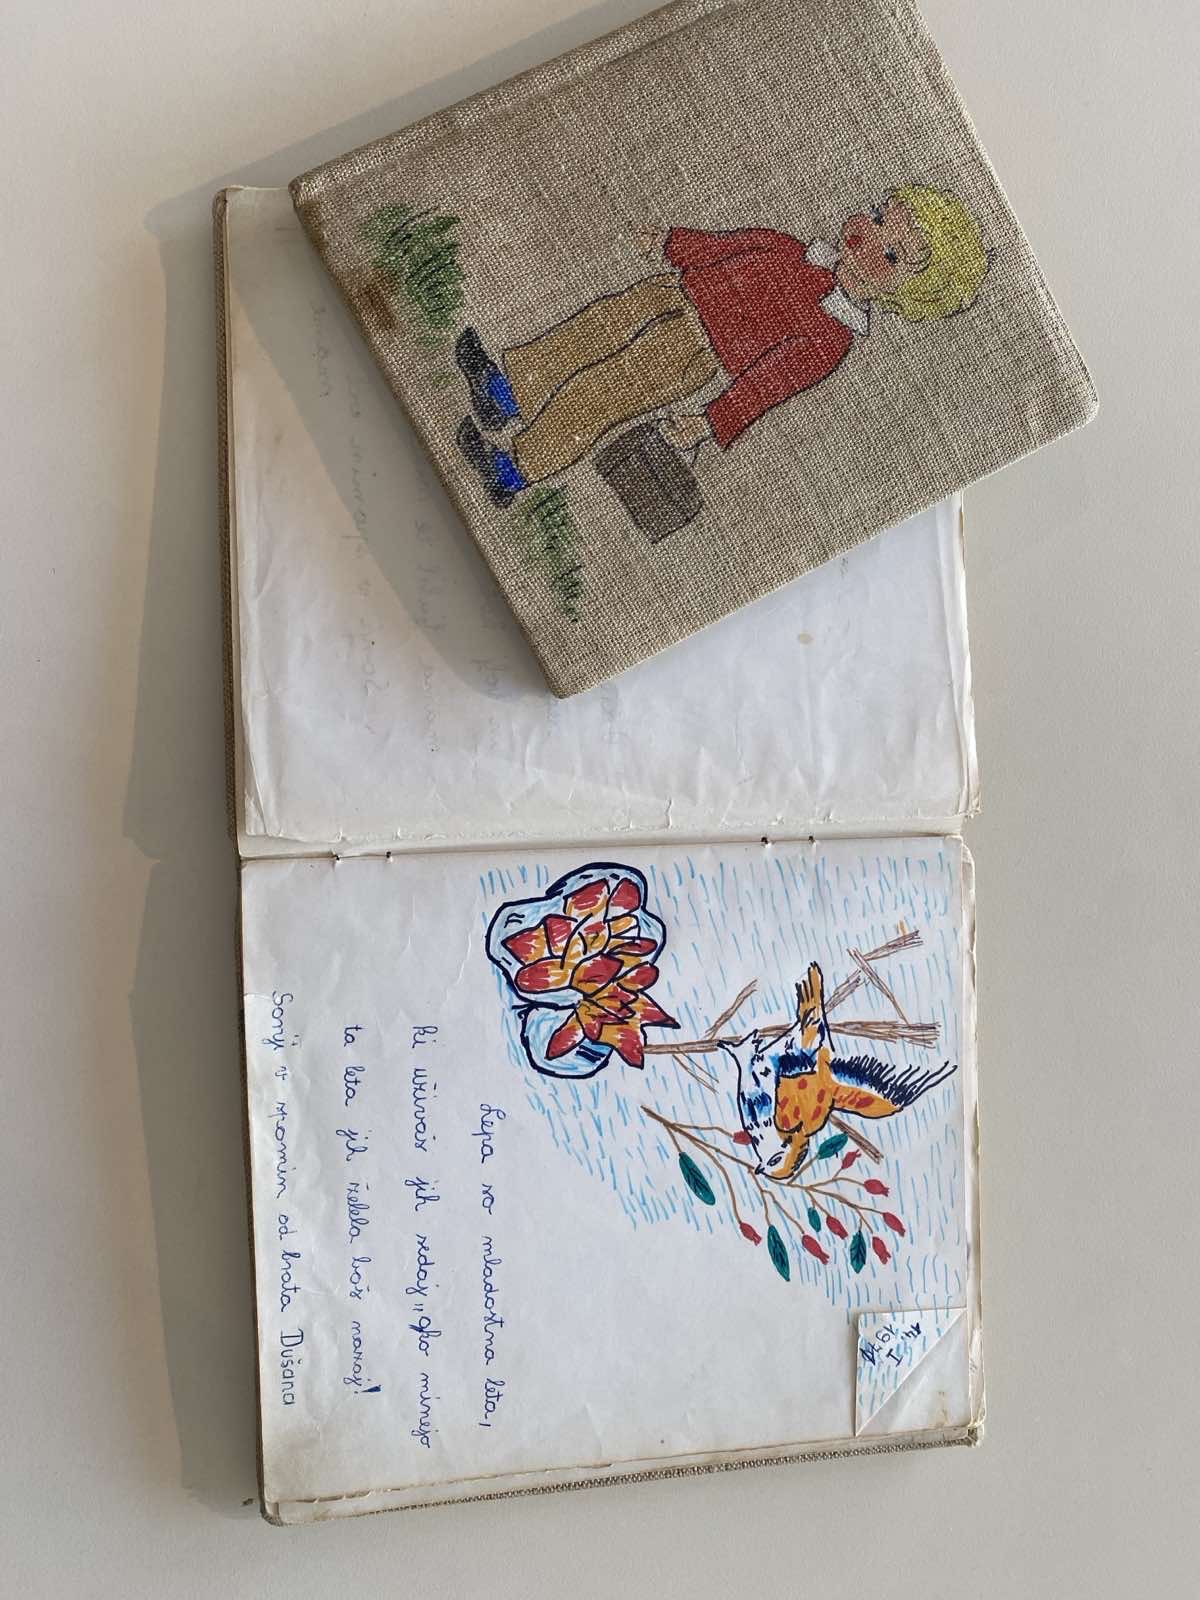 14. I
Lepa so mladostna leta,
ki uživaš jih sedaj, „ako minejo
ta leta jih želela boš nazaj!
Soniji v spomin od brata Dušana